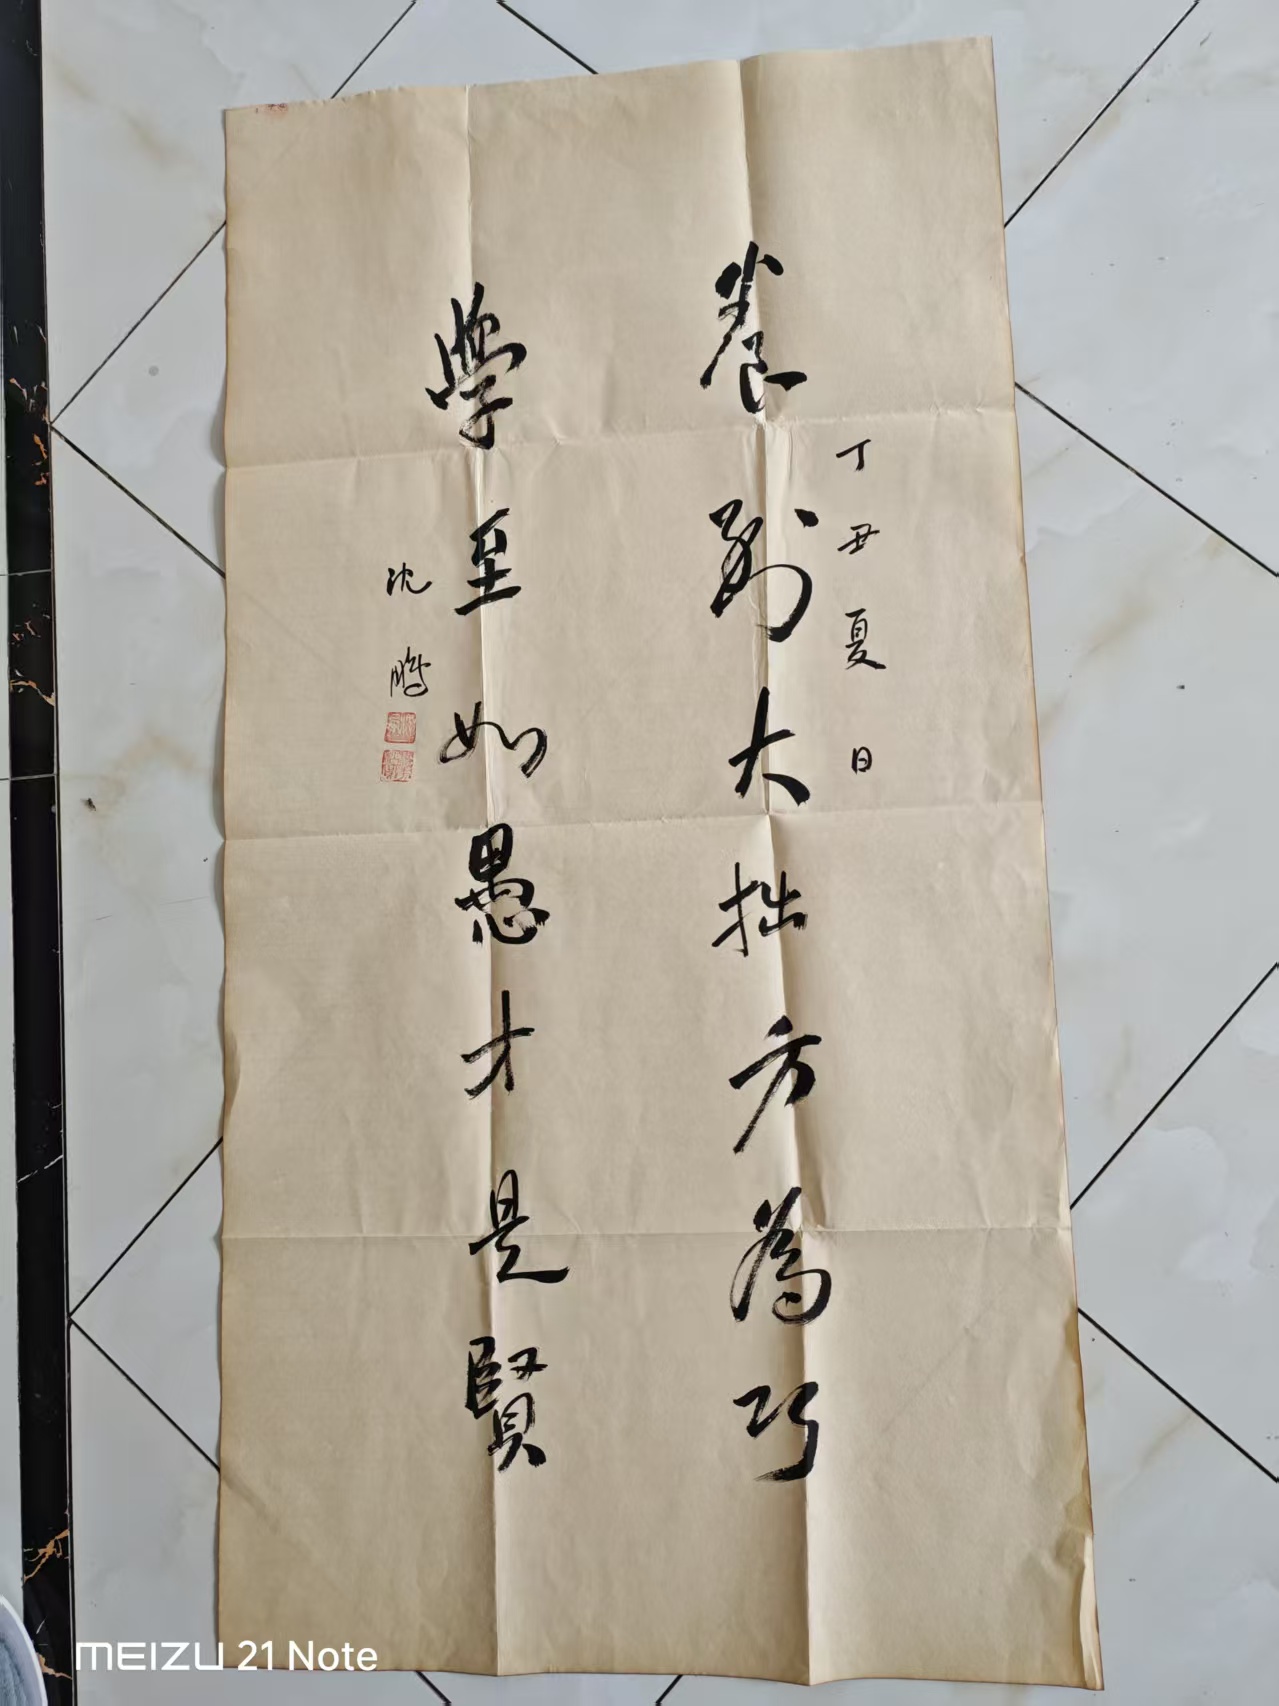 丁丑夏日
養到大拙方為巧
學至如愚才是賢
沈鵬
MEIZU 21 Note